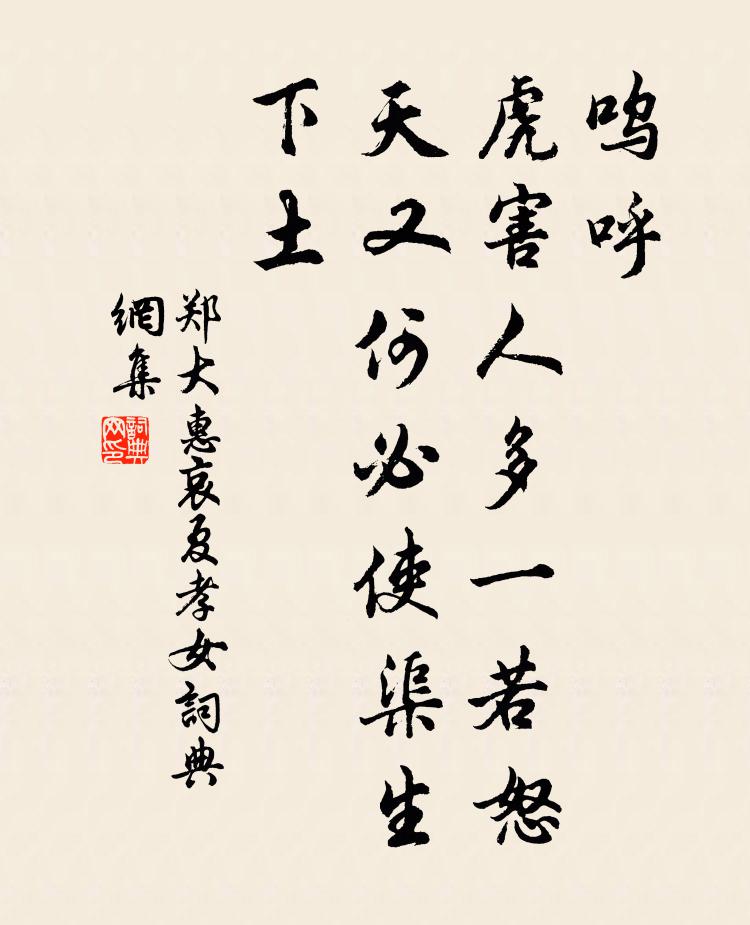 呜呼
虎害人多一若怒
天又何必使渠生
下土
郑大惠哀夏孝女詞典
網集
詞典
网印